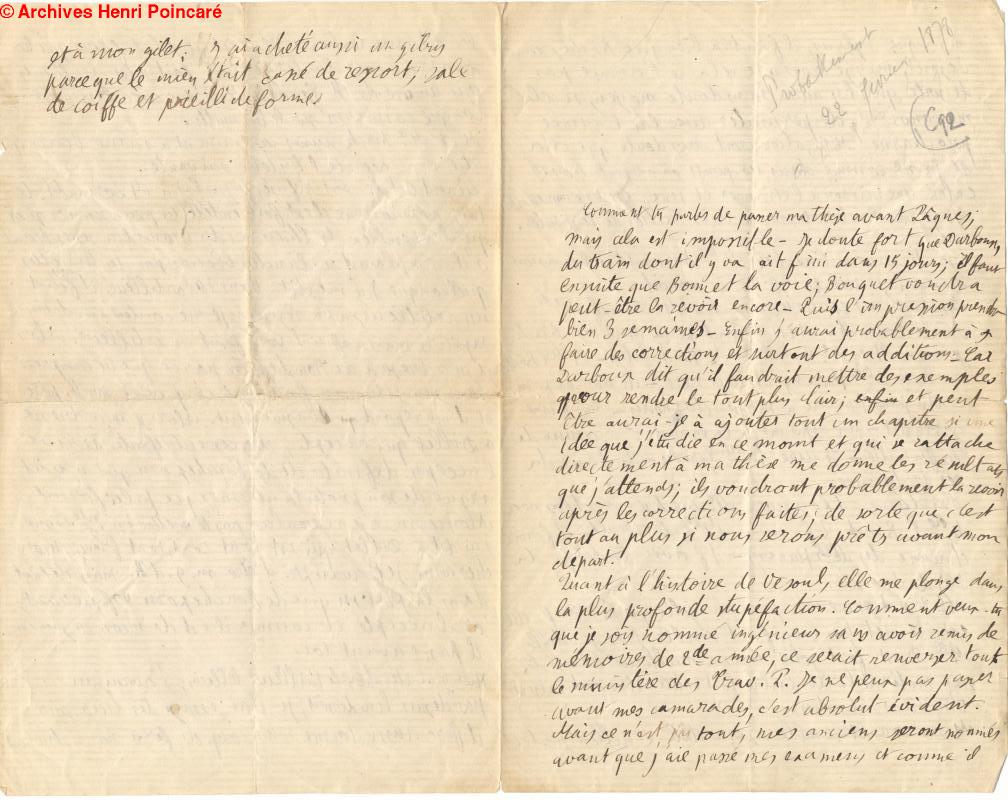 © Archives Henri Poincaré
et à mon gilet; J'ai acheté aussi un gibus
parceque le mien était cassé de ressort, sale
de coiffe et vieilli de formes
Probablement 1878
22 février
C92
Comment tu parles de passer ma thèse avant Pâques;
mais cela est impossible - Je doute fort que Darboux,
du train dont il y va ait fini dans 15 jours; il faut
ensuite que Bonnet la voie; Bouquet voudra
peut-être la revoir encore - Puis l'impression prendra
bien 3 semaines - Enfin j'aurai probablement à
faire des corrections et surtout des additions - Car
Darboux dit qu'il faudrait mettre des exemples
pour rendre le tout plus clair; enfin et peut
être aurai-je à ajouter tout un chapitre si une
idée que j'étudie en ce momt et qui se rattache
directement à ma thèse me donne les résultats
que j'attends; ils voudront probablement la revoir
après les corrections faites; de sorte que c'est
tout au plus si nous serons prêts avant mon
départ.
Quant à l'histoire de Vesoul, elle me plonge dans
la plus profonde stupéfaction. Comment veux-tu
que je sois nommé ingénieur sans avoir remis de
mémoires de 2de année, ce serait renverser tout
le ministère des Trav. P. Je ne peux pas passer
avant mes camarades, c'est absolut évident.
Mais ce n'est pas tout, mes anciens seront nommés
avant que j'aie passé mes examens et comme il